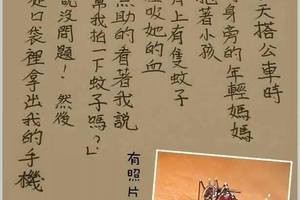 天搭公車時
身旁的年輕媽媽
抱著小孩
背上有隻蚊子
吸她的血
無助的看著我說
幫我拍一下蚊子嗎?」
說沒問題! 然後
從口袋裡拿出我的手機
有照片